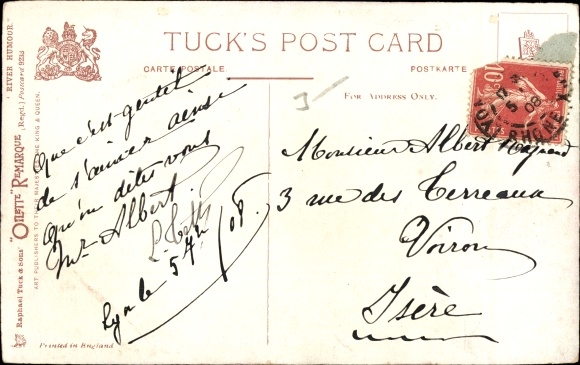 TUCK'S POST CARD
CARTE POSTALE.
POSTKARTE
FOR ADDRESS ONLY.
"RIVER HUMOUR"
Postcard 9234
Raphael Tuck & Sons' "OILETTE" REMARQUE (Regd.)
ART PUBLISHERS TO THEIR MAJESTIES THE KING & QUEEN.
Printed in England
Que c'est gentil
de s'aimer ainsi
Qu'en dites-vous
Mr Albert
Lyon le 5 08
Monsieur Albert
3 rue des Terreaux
Voiron
Isère
10
5
08
RHONE